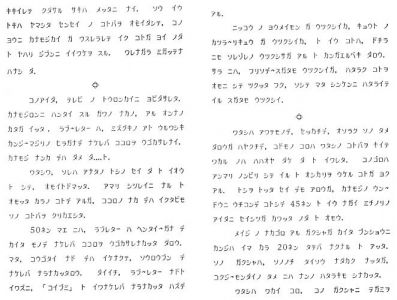 キサイレテ クダサリ サキハ メッタニ ナイ。 ソウ イウ
トキハ ヤマンタ センセイ ノ コトバヲ オモイダシテ、 コノ
ヨウニ カナモジカイ ガ ウスレラレテ イク コトガ ヨイ ノダ
ト ヤハリ ジブンニ イイキケテ スル。 ワレナガラ ミガッテナ
ハナシ ダ。
◇
コノアイダ、 テレビ ノ トウロンカイニ ヨビダサレタ。
カナモジロンニ ハンタイ スル ガワノ ナカノ、 アル オンナノ
カタガ イッタ、 ラブ-レター ハ、 ミズグキノ アト ウルワシキ
カンジ-マジリノ ヒラガナデ ナケレバ ココロヲ ウゴカサレナイ。
カナモジ ナンカ デハ ダメ ダ……ト。
ワタシワ、 ソレハ アナタノ トシノ セイ ダ ト イオウ
ト シテ、 オモイトドマッタ。 アマリ シツレイニ ナル ト
オモッタ カラノ コトデ アルガ、 ココロノ ナカ デハ イクタビモ
ソノ コトバヲ クリカエシタ。
50ネン マエ ニハ、 ラブ-レター ハ ヘンタイ-ガナ デ
カイタ モノデ ナケレバ ココロヲ ウゴカサレナカッタ ダロウ。
マタ、 コウゴタイ デハ イケナクテ、 ソウロウブン デ
ナケレバ ナラナカッタロウ。 ダイイチ、 ラブ-レター ナドト
イワズニ、 「コイブミ」 ト イワナケレバ ナラナカッタ ハズデ
アル。
ニッコウ ノ ヨウメイモン ガ ウツクシイカ、 キョウト ノ
カツラ-リキュウ ガ ウツクシイカ、 ト イウ コトハ、 ドチラ
ニモ ソレゾレノ ウツクシサガ アル ト カンガエルベキ ダロウ。
サラ ニハ、 フリソデ-スガタモ ウツクシイガ、 ハタラク コトヲ
オモニ シテ ツクッタ フク、 ソシテ マタ シンケンニ ハタライテ
イル スガタモ ウツクシイ。
◇
ワタシハ アワテモノデ、 セッカチデ、 オソラク ソノ タメ
ダロウガ ハヤクチデ、 コドモノ コロハ ワタシノ コトバヲ キイテ
ワカル ノハ ハハオヤ ダケ ダ ト イワレタ。 コノゴロハ
アンマリ ノンビリ シテ イル ト オンカリヲ ウケル コトガ ヨク
アル。 トシヲ トッタ セイ デモ アロウガ、 カナモジノ ウン-
ドウニ ウチコンデ コトシデ 45ネン ト イウ ナガイ ミチノリノ
アイダニ セイシツガ カワッタ ノダ ト オモウ。
メイジ ノ ナカゴロ アル ガクシャガ カイタ ブンショウニ
カンジハ イマ カラ 20ネン タテバ ナクナル ト アッタ。
ソノ ガクシャハ、 ソノノチ ダイソウ ナダカク ナッタガ、
コクジ-モンダイノ タメ ニハ ナンノ ハタラキモ シナカッタ。
ワタシハ ワカイ コロ、 コノ ガクシャニ デガミヲ